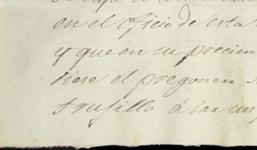 en el oficio de esta
y que en su precien
diese el pregonero
Trujillo á dar un